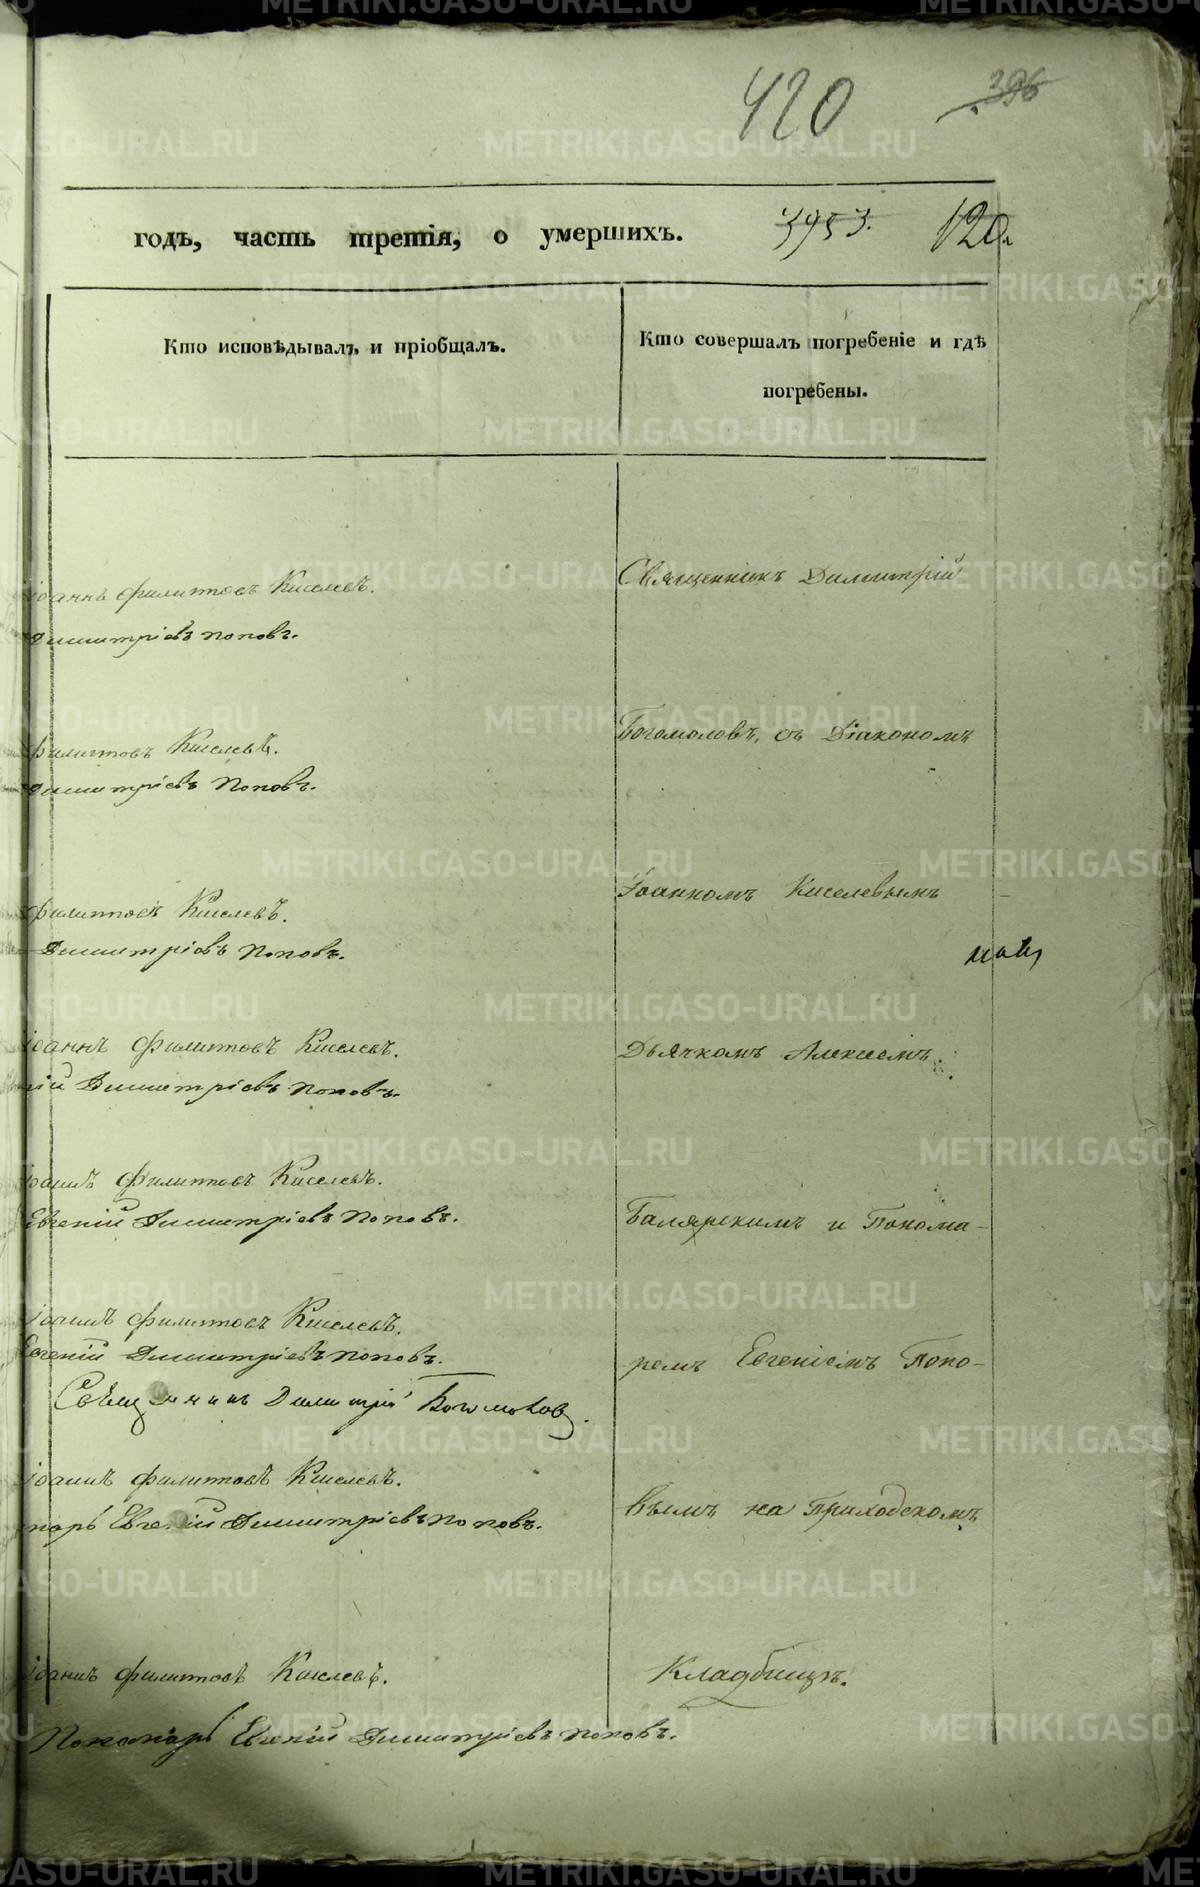 420 396
годъ, часть третія, о умершихъ. 3953. 120.
Кто исповѣдывалъ и пріобщалъ.
Кто совершалъ погребеніе и гдѣ
погребены.
Іоаннъ Филиптовъ Киселевъ.
Димитріевъ Поповъ.
Филиптовъ Киселевъ.
Димитріевъ Поповъ.
Филиптовъ Киселевъ.
Димитріевъ Поповъ.
Іоаннъ Филиптовъ Киселевъ.
ній Димитріевъ Поповъ.
Іоаннъ Филиптовъ Киселевъ.
Евгеній Димитріевъ Поповъ.
Іоаннъ Филиптовъ Киселевъ.
Евгеній Димитріевъ Поповъ.
Священникъ Димитрій Богомолов
Іоаннъ Филиптовъ Киселевъ.
марь Евгеній Димитріевъ Поповъ.
Іоаннъ Филиптовъ Киселевъ.
Пономарь Евгеній Димитріевъ Поповъ.
Священникъ Димитрій
Богомоловъ, съ Діакономъ
Іоанномъ Киселевымъ
Дьячкомъ Алексіемъ
Балярскимъ и Понома-
ремъ Евгеніемъ Попо-
вымъ на Приходскомъ
Кладбищѣ.
METRIKI.GASO-URAL.RU